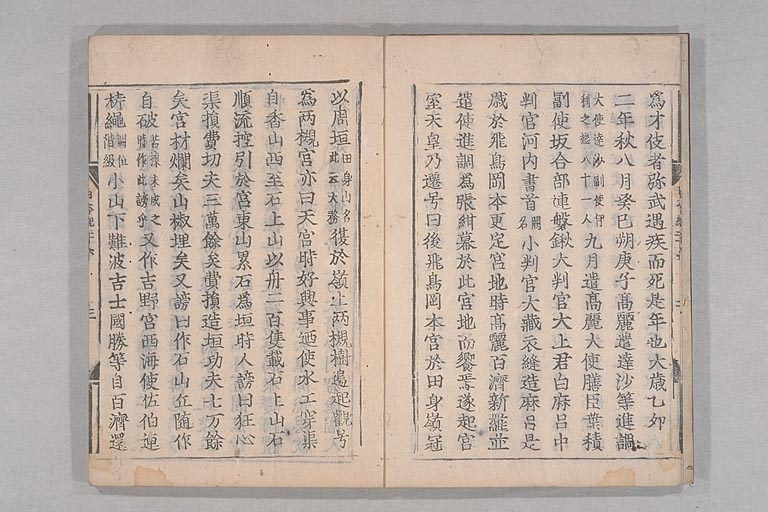 為才伎者弥武遇疾而死是年也大歳乙卯
二年秋八月癸巳朔庚子髙麗遣達沙等進調
大使達沙副使伊利之惣八十一人九月遣髙麗大使膳臣葉積
副使坂合部連磐鍬大判官犬上君白麻呂中
判官河内書首闕名小判官大藏衣縫造麻呂是
歳於飛鳥岡本更定宮地時髙麗百濟新羅並
遣使進調為張紺幕於此宮地而饗焉遂起宮
室天皇乃遷号曰後飛鳥岡本宮於田身嶺冠
以周垣田身山名此云大務復於嶺上两槻樹邊起觀号
為两槻宮亦曰天宮時好興事廼使水工穿渠
自香山西至石上山以舟二百隻載石上山石
順流控引於宮東山累石為垣時人謗曰狂心
渠損費功夫三萬餘矣費損造垣功夫七万餘
矣宮材爛矣山椒埋矣又謗曰作石山丘随作
自破若據未成之時作此謗乎又作吉野宮西海使佐伯連
栲繩闕位階級小山下難波吉士國勝等自百濟還